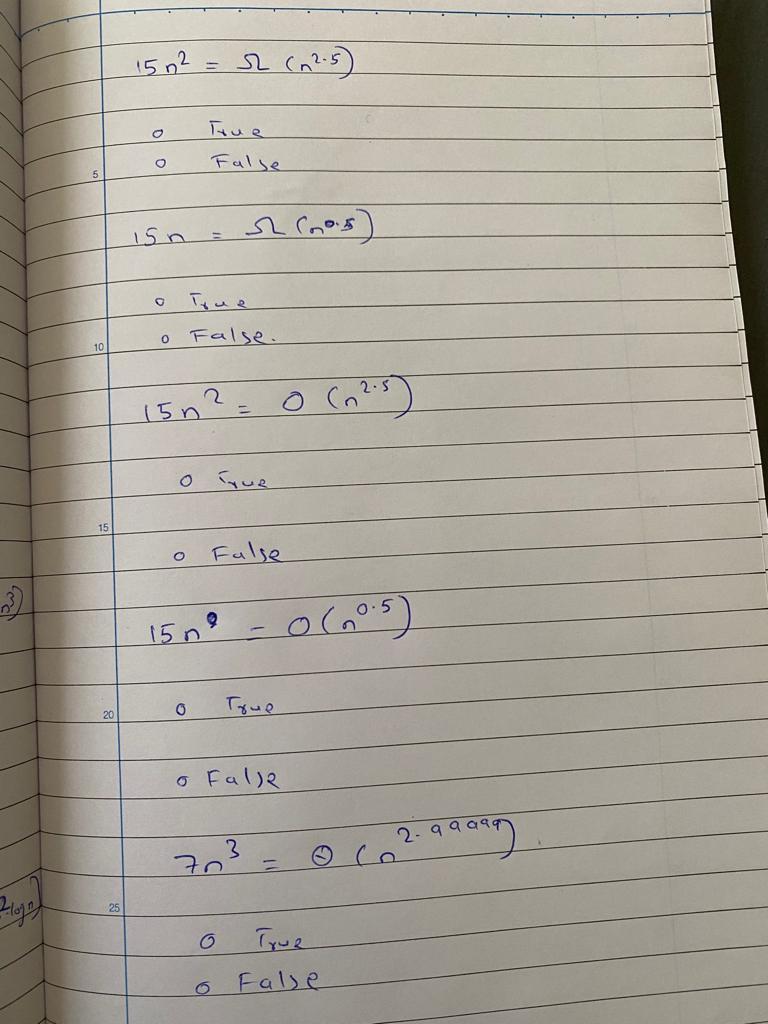 15n² = Ω (n^2.5)
o True
o False
5
15n = Ω (n^0.5)
o True
o False.
10
15n² = O (n^2.5)
o True
15
o False
n³)
15n = O(n^0.5)
o True
20
o False
7n³ = Θ (n^2.99999)
log n)
25
o True
o False